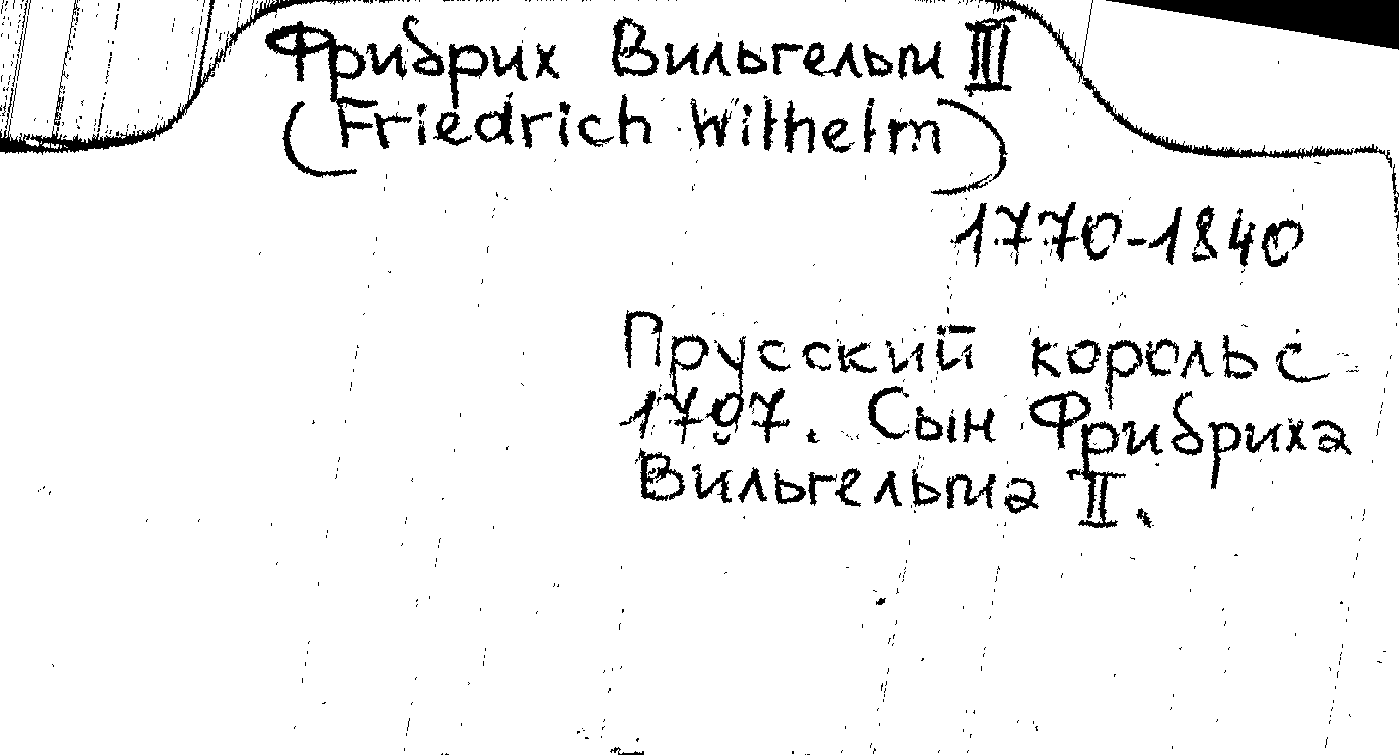 Фридрих Вильгельм III
(Friedrich Wilhelm)
1770-1840
Прусский король с
1797. Сын Фридриха
Вильгельма II.